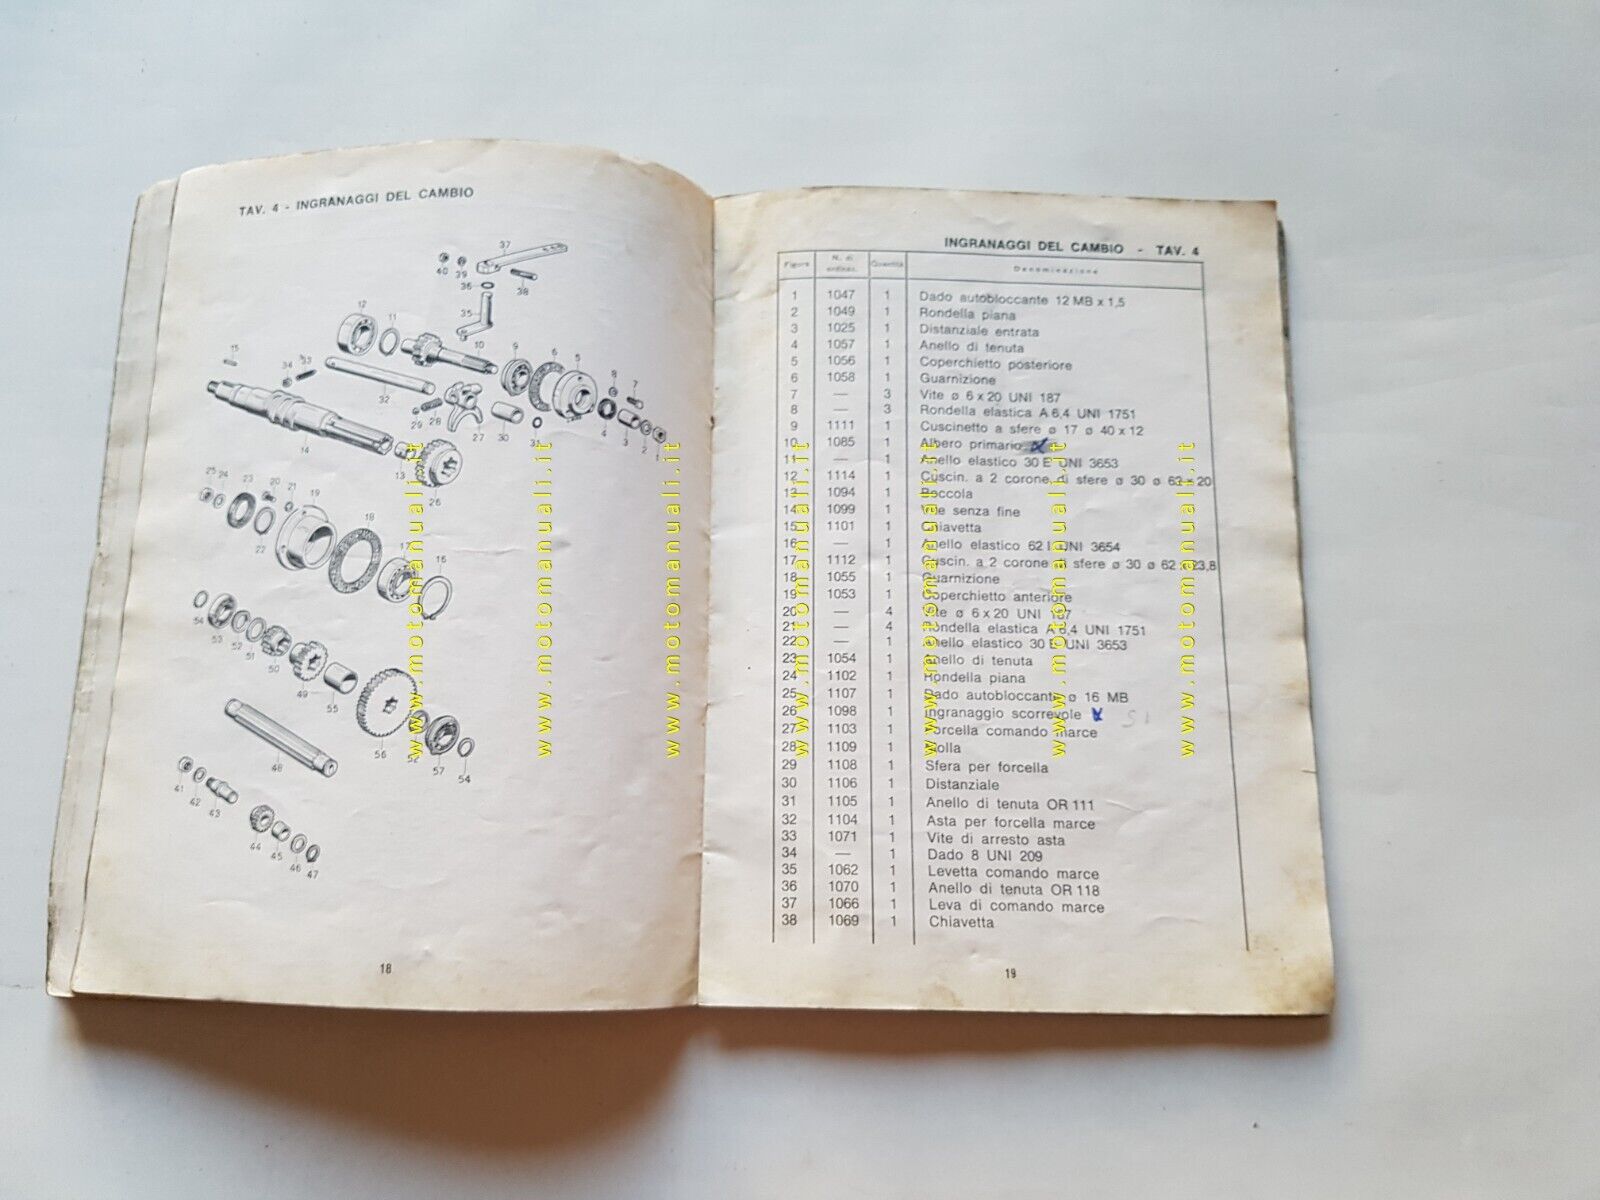 TAV. 4 - INGRANAGGI DEL CAMBIO
37
40 39
36
38
12
11
35
10
9
6
5
15
34 33
32
8
7
29 28
27
30
31
4
3
2
1
14
13
26
25 24
23
20
21
19
22
18
17
16
54
53
52
51
50
49
55
56
52
57
54
48
41
42
43
44
45
46
47
18
INGRANAGGI DEL CAMBIO - TAV. 4
Figura N. di ordinaz. Quantità Denominazione
1 1047 1 Dado autobloccante 12 MB x 1,5
2 1049 1 Rondella piana
3 1025 1 Distanziale entrata
4 1057 1 Anello di tenuta
5 1056 1 Coperchietto posteriore
6 1058 1 Guarnizione
7 — 3 Vite ø 6 x 20 UNI 187
8 — 3 Rondella elastica A 6,4 UNI 1751
9 1111 1 Cuscinetto a sfere ø 17 ø 40 x 12
10 1085 1 Albero primario
11 — 1 Anello elastico 30 E UNI 3653
12 1114 1 Cuscin. a 2 corone di sfere ø 30 ø 62 x 20
13 1094 1 Boccola
14 1099 1 Vite senza fine
15 1101 1 Chiavetta
16 — 1 Anello elastico 62 I UNI 3654
17 1112 1 Cuscin. a 2 corone di sfere ø 30 ø 62 x 23,8
18 1055 1 Guarnizione
19 1053 1 Coperchietto anteriore
20 — 4 Vite ø 6 x 20 UNI 187
21 — 4 Rondella elastica A 6,4 UNI 1751
22 — 1 Anello elastico 30 E UNI 3653
23 1054 1 Anello di tenuta
24 1102 1 Rondella piana
25 1107 1 Dado autobloccante ø 16 MB
26 1098 1 Ingranaggio scorrevole
27 1103 1 Forcella comando marce
28 1109 1 Molla
29 1108 1 Sfera per forcella
30 1106 1 Distanziale
31 1105 1 Anello di tenuta OR 111
32 1104 1 Asta per forcella marce
33 1071 1 Vite di arresto asta
34 — 1 Dado 8 UNI 209
35 1062 1 Levetta comando marce
36 1070 1 Anello di tenuta OR 118
37 1066 1 Leva di comando marce
38 1069 1 Chiavetta
19
www.motomanuali.it
www.motomanuali.it
www.motomanuali.it
www.motomanuali.it
www.motomanuali.it
www.motomanuali.it
www.motomanuali.it